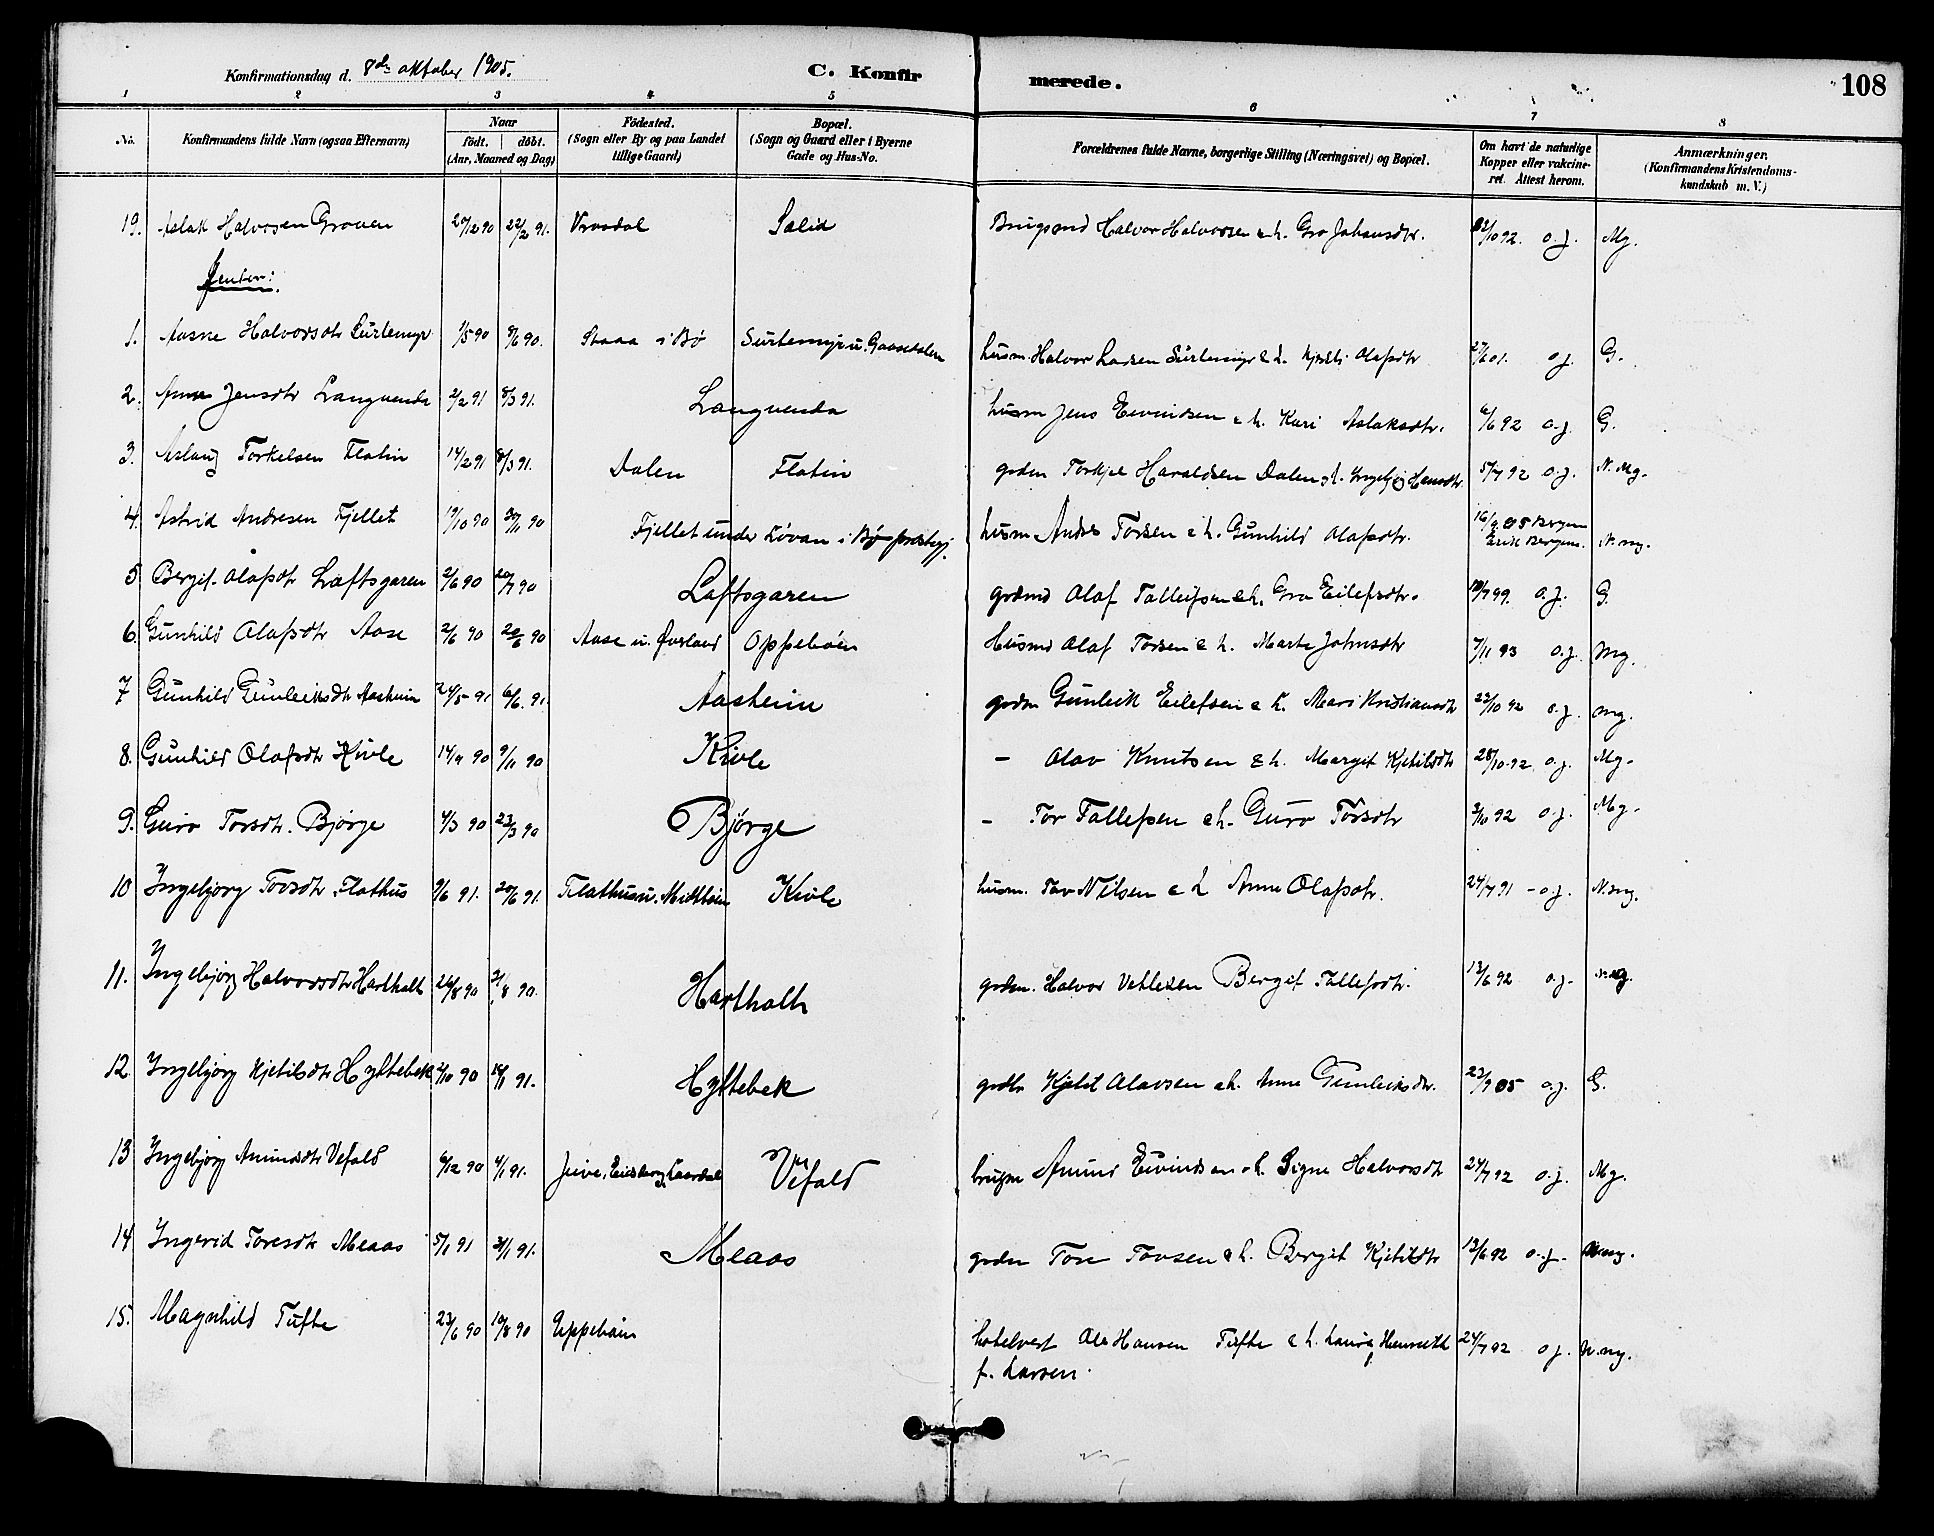 Konfirmationsdag d. 8de oktober 1905. C. Konfirmerede. 108
1 2 3 4 5 6 7 8
No. Konfirmandens fulde Navn (ogsaa Efternavn) Naar født. døbt. (Aar, Maaned og Dag) Fødested. (Sogn eller By og paa Landet tillige Gaard) Bopæl. (Sogn og Gaard eller i Byerne Gade og Hus-No. Forældrenes fulde Navne, borgerlige Stilling (Næringsvei) og Bopæl. Om havt de naturlige Kopper eller vakcineret. Attest herom. Anmærkninger. (Konfirmandens Kristendomskundskab m. V.)
19. Aslak Halvorsen Grouen 20/12 90 22/2 91. Vraadal Salid Brugsmd Halvor Halvorsen & h. Gro Johansdtr. /10 92. o.j. Mg.
Jenter:
1. Aasne Halvorsdtr Surtemyr 1/5 90 8/6 90. Staaa i Bø Surtemyr u. Gaasedalen husm. Halvor Larsen Surtemyr & h. Olafsdtr 27/6 01. o.j. G.
2. Anne Jensdtr Langvenda 2/2 91 8/3 91. Langvenda husm Jens Eivindsen & h. Kari Aslaksdtr. 6/6 92 o.j. G.
3. Aslaug Torkelsen Flatin 14/2 91 8/3 91. Dalen Flatin grdm Torkjel Haraldsen Dalen & h. Ingebjørg Hansdtr. 5/7 92 o.j. N. Mg.
4. Astrid Andresen Fjellet 19/10 90 30/11 90 Fjellet under Løvan i Bø prestegj. husm Andres Torsen & h. Gunhild Olafsdtr. 16/9 05 Bergen Erik Bergens. N. mg.
5 Bergit Olafsdtr Laftsgaren 2/6 90 20/7 90 Laftsgaren grdmd Olaf Talleifsen & h. Gro Eilefsdtr. 10/7 99. o.j. G.
6. Gunhild Olafsdtr Aase 2/6 90 22/6 90 Aase u. Øverland Oppebøen Husmd Olaf Torsen & h. Marte Johnsdtr 7/11 93 o.j. Mg.
7 Gunhild Gunleiksdtr Aasheim 24/5 91 6/6. 91. Aasheim grdm Gunleik Eilefsen & h. Mari Kristiansdtr 22/10 92 o.j. mg.
8. Gunhild Olafsdtr Kivle 14/9 90 9/11 90 Kivle - Olav Knutsen & h. Margit Kjetilsdtr 28/10. 92. o.j. Mg.
9. Guro Torsdtr. Bjørge 4/3 90 23/3 90 Bjørge - Tor Tallefsen & h. Guro Torsdtr 3/10 92 o.j. Mg.
10 Ingebjørg Tovsdtr Flathus 9/6 91. 20/6 91. Flathus u. Midtbøen Kivle husm. Tov Nilsen & h Anne Olafsdtr. 24/7 91 - o.j. N. mg.
11. Ingebjørg Halvorsdtr Harthalt 26/8 90 31/8 90. Harthalt grdm. Halvor Vetlesen Bergit Tallefsdtr. 13/6 92 o.j. N. mg.
12. Ingebjørg Kjetilsdtr Hyttebek 2/10 90 18/1 91. Hyttebek grdbr Kjetil Olavsen & h. Anne Gunleiksdtr. 23/9 05 o.j. G.
13 Ingebjørg Amundsdtr Vefald 6/12 90 4/1 91. Juve, Eidsborg, Laardal Vefald brugsm Amund Eivindsen & h. Signe Halvorsdtr 24/7 92 o.j. Mg.
14 Ingerid Toresdtr Meaas 5/1 91 31/1 91. Meaas grdm Tore Tovsen & h. Bergit Kjetilsdtr 13/6 92 o.j. N. mg.
15. Magnhild Tufte 23/6 90 10/8 90 Oppebøen hotelvert Ole Hansen Tufte & h. Henriette f. Larsen. 24/7 92 o.j. N. mg.